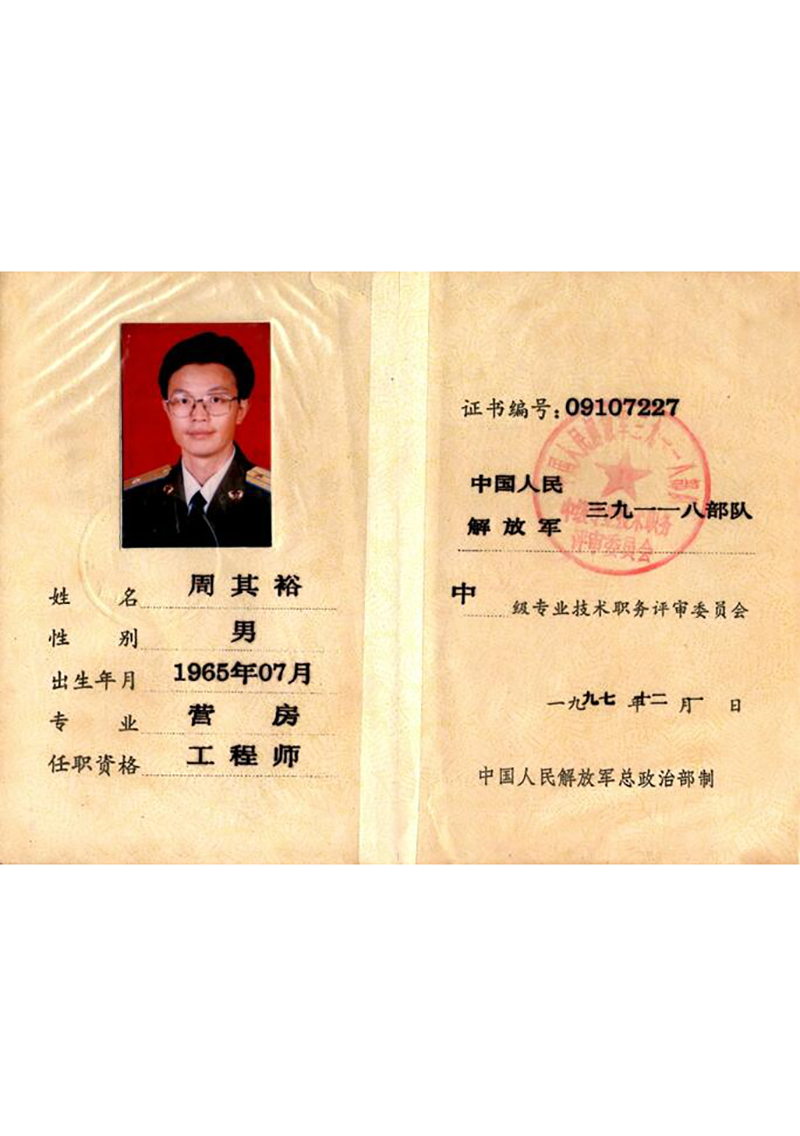 姓名 周其裕
性别 男
出生年月 1965年07月
专业 营房
任职资格 工程师
证书编号:09107227
中国人民
解放军 三九一一八部队
中国人民解放军三九一一八部队
中级专业技术职务
评审委员会
中级专业技术职务评审委员会
一九九七年十二月一日
中国人民解放军总政治部制